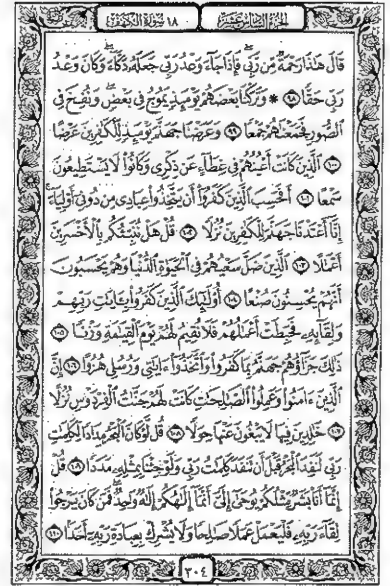 الجزء السادس عشر ١٨ سورة الكهف
قَالَ هَٰذَا رَحْمَةٌ مِّن رَّبِّى فَإِذَا جَآءَ وَعْدُ رَبِّى جَعَلَهُۥ دَكَّآءَ وَكَانَ وَعْدُ
رَبِّى حَقًّا ٩٨ * وَتَرَكْنَا بَعْضَهُمْ يَوْمَئِذٍ يَمُوجُ فِى بَعْضٍ وَنُفِخَ فِى
ٱلصُّورِ فَجَمَعْنَٰهُمْ جَمْعًا ٩٩ وَعَرَضْنَا جَهَنَّمَ يَوْمَئِذٍ لِّلْكَٰفِرِينَ عَرْضًا
١٠٠ ٱلَّذِينَ كَانَتْ أَعْيُنُهُمْ فِى غِطَآءٍ عَن ذِكْرِى وَكَانُوا۟ لَا يَسْتَطِيعُونَ
سَمْعًا ١٠١ أَفَحَسِبَ ٱلَّذِينَ كَفَرُوٓا۟ أَن يَتَّخِذُوا۟ عِبَادِى مِن دُونِىٓ أَوْلِيَآءَ
إِنَّآ أَعْتَدْنَا جَهَنَّمَ لِلْكَٰفِرِينَ نُزُلًا ١٠٢ قُلْ هَلْ نُنَبِّئُكُم بِٱلْأَخْسَرِينَ
أَعْمَٰلًا ١٠٣ ٱلَّذِينَ ضَلَّ سَعْيُهُمْ فِى ٱلْحَيَوٰةِ ٱلدُّنْيَا وَهُمْ يَحْسَبُونَ
أَنَّهُمْ يُحْسِنُونَ صُنْعًا ١٠٤ أُو۟لَٰٓئِكَ ٱلَّذِينَ كَفَرُوا۟ بِـَٔايَٰتِ رَبِّهِمْ
وَلِقَآئِهِۦ فَحَبِطَتْ أَعْمَٰلُهُمْ فَلَا نُقِيمُ لَهُمْ يَوْمَ ٱلْقِيَٰمَةِ وَزْنًا ١٠٥
ذَٰلِكَ جَزَآؤُهُمْ جَهَنَّمُ بِمَا كَفَرُوا۟ وَٱتَّخَذُوٓا۟ ءَايَٰتِى وَرُسُلِى هُزُوًا ١٠٦ إِنَّ
ٱلَّذِينَ ءَامَنُوا۟ وَعَمِلُوا۟ ٱلصَّٰلِحَٰتِ كَانَتْ لَهُمْ جَنَّٰتُ ٱلْفِرْدَوْسِ نُزُلًا
١٠٧ خَٰلِدِينَ فِيهَا لَا يَبْغُونَ عَنْهَا حِوَلًا ١٠٨ قُل لَّوْ كَانَ ٱلْبَحْرُ مِدَادًا لِّكَلِمَٰتِ
رَبِّى لَنَفِدَ ٱلْبَحْرُ قَبْلَ أَن تَنفَدَ كَلِمَٰتُ رَبِّى وَلَوْ جِئْنَا بِمِثْلِهِۦ مَدَدًا ١٠٩ قُلْ
إِنَّمَآ أَنَا۠ بَشَرٌ مِّثْلُكُمْ يُوحَىٰٓ إِلَىَّ أَنَّمَآ إِلَٰهُكُمْ إِلَٰهٌ وَٰحِدٌ فَمَن كَانَ يَرْجُوا۟
لِقَآءَ رَبِّهِۦ فَلْيَعْمَلْ عَمَلًا صَٰلِحًا وَلَا يُشْرِكْ بِعِبَادَةِ رَبِّهِۦٓ أَحَدًۢا ١١٠
٣٠٤